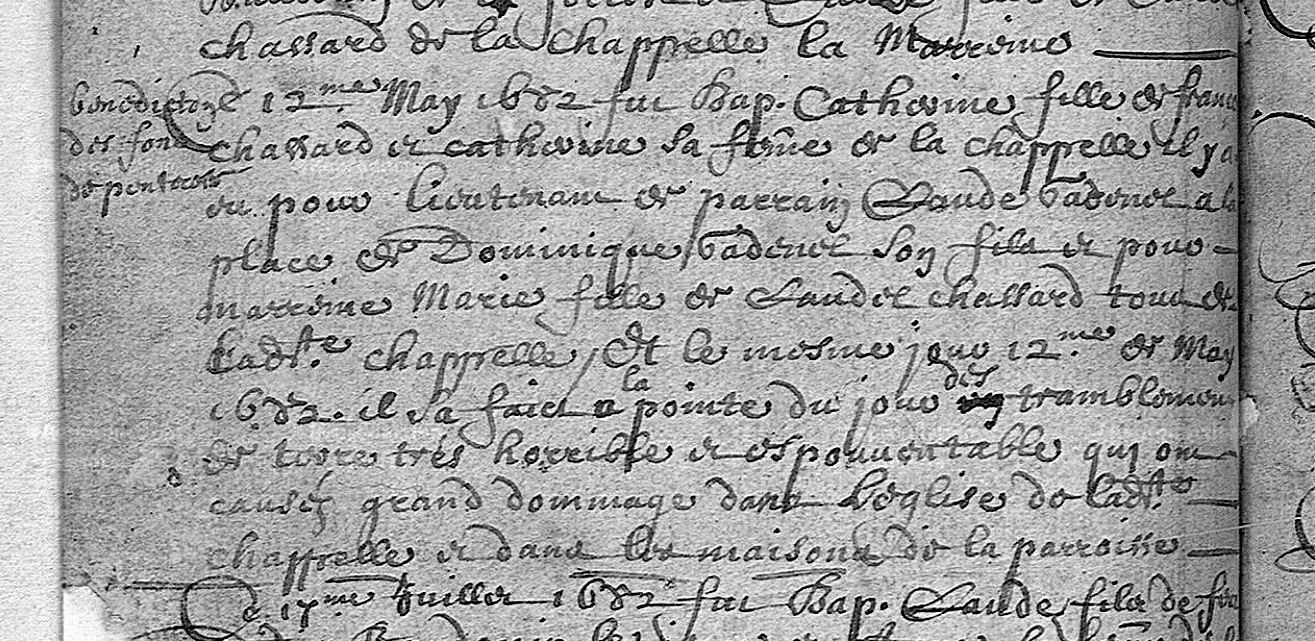 chassard de la chapprelle la Marreine
benediction
des fons
de pentecoste
Le 12.me May 1682 fut Bap. Catherine fille de franc
chassard et catherine sa feme de la chapprelle il y a
eu pour lieutenant de parrain Claude Vadenet a la
place de Dominique Vadenet son fils et pour
marreine Marie fille de Claudet chassard tout de
lad.te chapprelle, Et le mesme jour 12.me de May
1682. il sa faict a la pointe du jour des tramblemens
de terre trés horrible et espouventable qui ont
causéz grand dommage dans l'eglise de lad.te
chapprelle et dans les maisons de la parroisse
Le 17.me Juillet 1682 fut Bap. Claude fils de